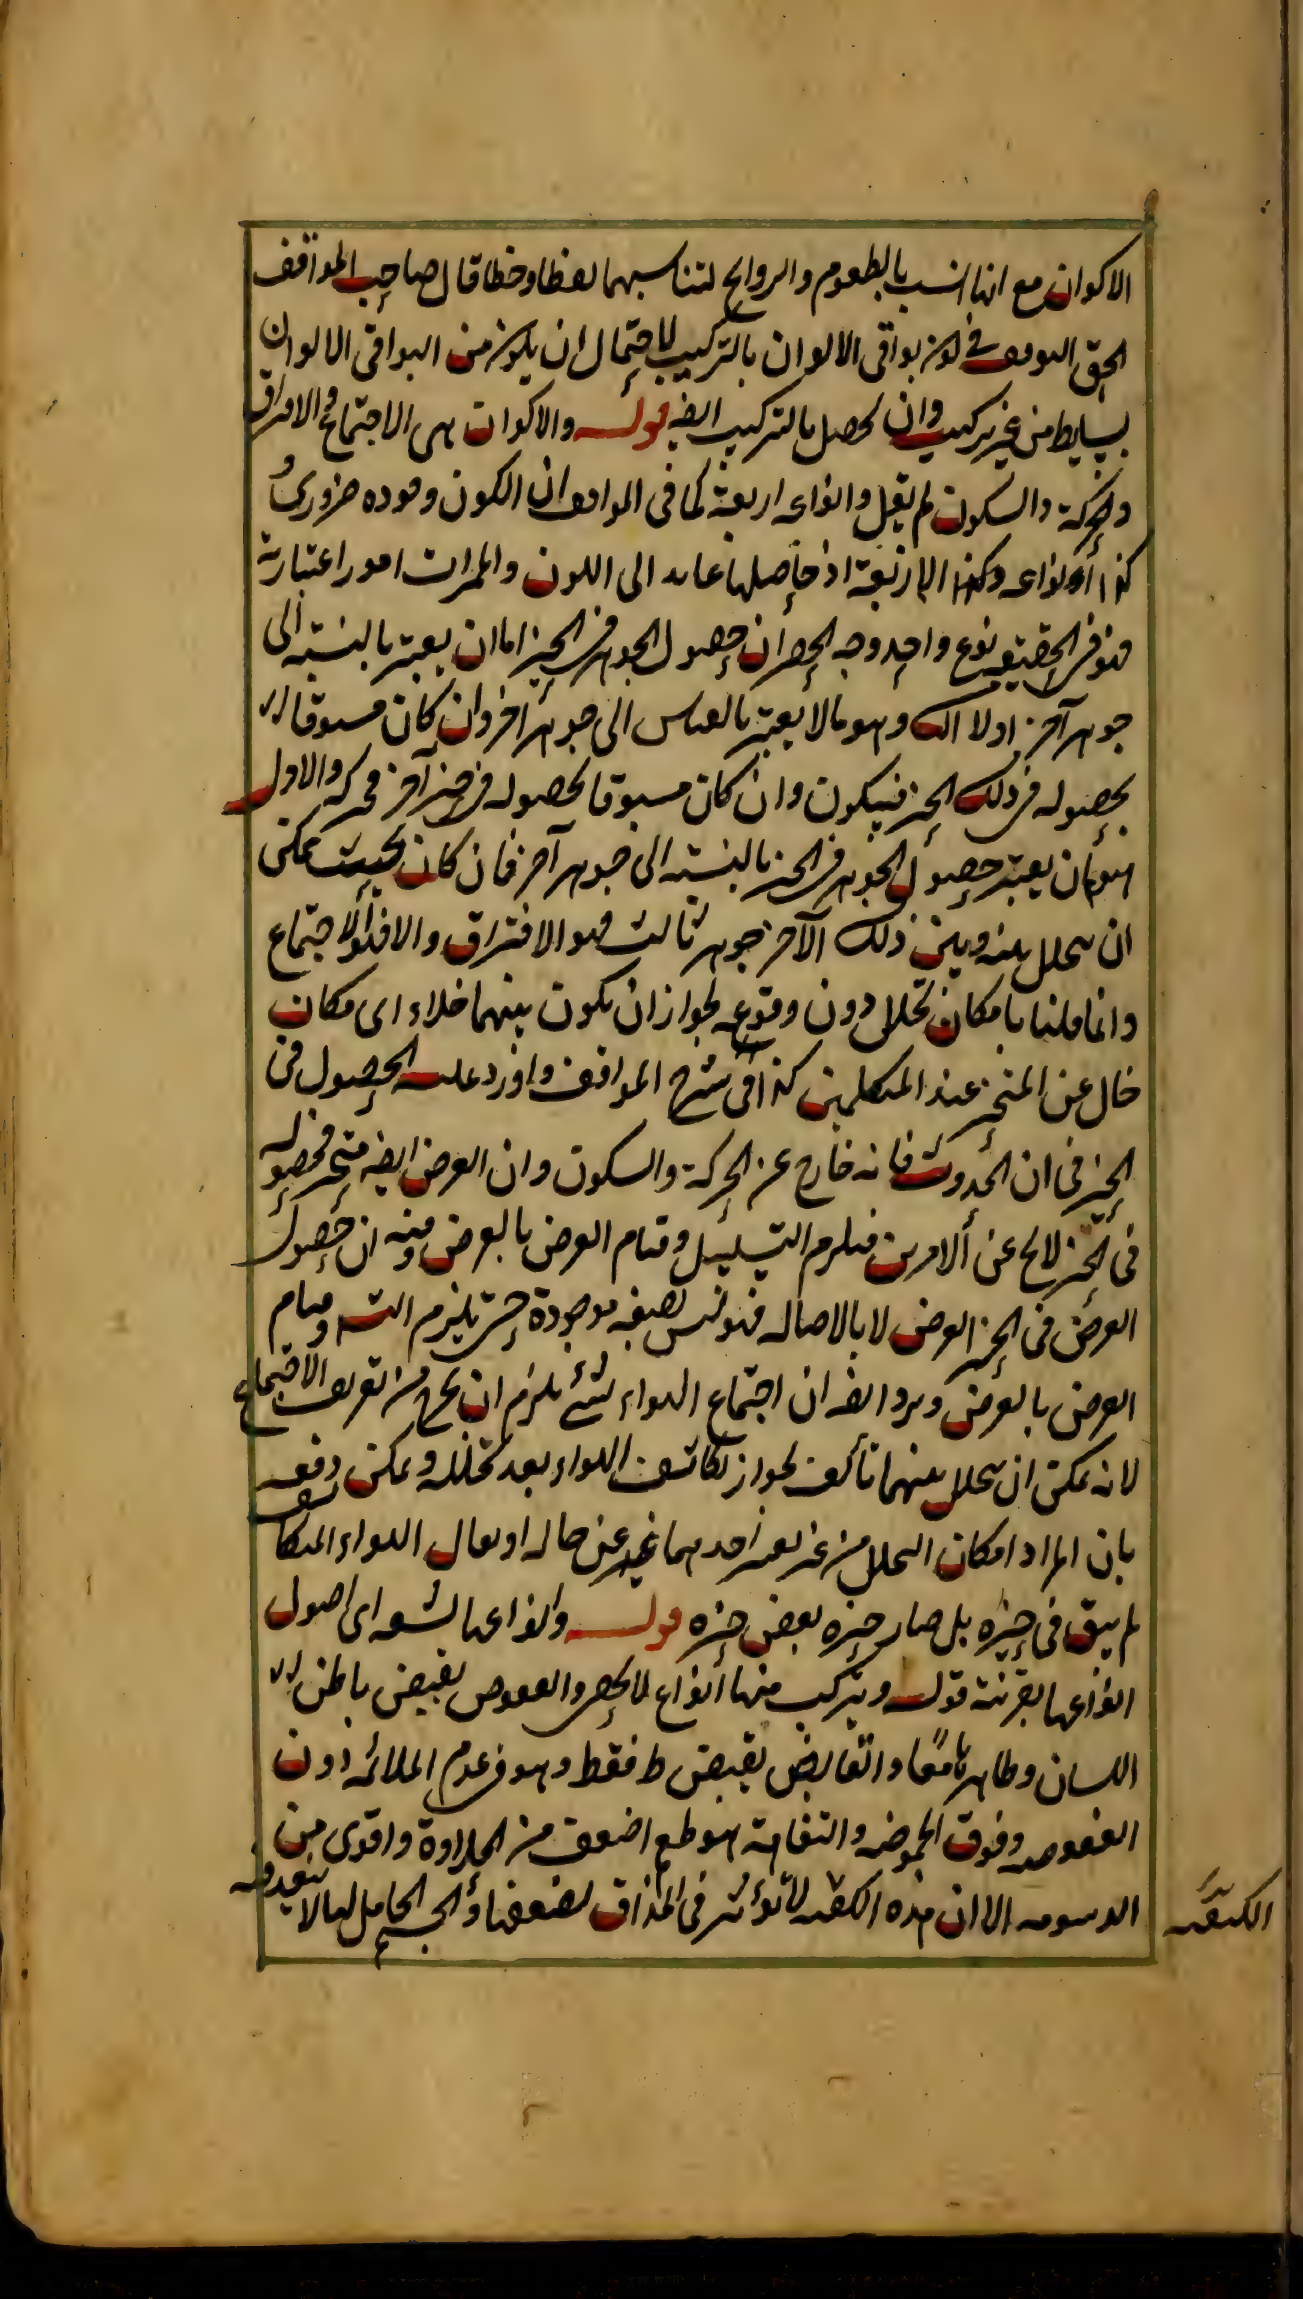 الاكوان مع انها انسب بالطعوم والروايح لتناسبهما لفظا وخطا قال صاحب المواقف
الحق التوقف في كون بواقى الالوان بالتركيب لاحتمال ان يكون من البواقى الالوان
بسايط من غير تركيب وان يحصل بالتركيب ايضه قوله والاكوان هى الاجتماع والافتراق
والحركة والسكون لم يقل وانواعه اربعة كما فى المواقف ان الكون وجوده ضرورى
كذا انواعه وكذا الاربعة اذ حاصلها عايد الى الكون والمميزات امور اعتبارية
فهو فى الحقيقة نوع واحد وجه الحصر ان حصول الجوهر فى الحيز اما ان يعتبر بالنسبة الى
جوهر آخر اولا الثانى وهو ما لا يعتبر بالقياس الى جوهر آخر وان كان مسبوقا
بحصوله فى ذلك الحيز فسكون وان كان مسبوقا بحصوله فى حيز آخر فحركة والاول
هو ان يعتبر حصول الجوهر فى الحيز بالنسبة الى جوهر آخر فان كان بحيث يمكن
ان يتخلل بينه وبين ذلك الآخر جوهر ثالث فهو الافتراق والا فهو الاجتماع
وانما قلنا بامكان تخلل دون وقوعه لجواز ان يكون بينهما خلاء اى مكان
خال عن المتحيز عند المتكلمين كذا فى شرح المواقف واورد عليه الحصول فى
الحيز فى ان الحدوث فانه خارج عن الحركة والسكون وان العرض ايضه متحيز فحصوله
فى الحيز لا يخ عن الامرين فيلزم التسلسل وقيام العرض بالعرض وفيه ان حصول
العرض فى الحيز العرض لا بالاصالة فهو ليس بصفة موجودة حتى يلزم التسه وقيام
العرض بالعرض ويرد ايضه ان اجتماع الهواء بشئ يلزم ان يخرج من تعريف الاجتماع
لانه يمكن ان يتخلل بينهما ثالث لجواز تكاثف الهواء بعد تخلله ويمكن دفعه
بان المراد امكان التخلل من غير تغير احدهما عن حاله او يقال الهواء المتكاثف
لم يبق فى حيزه بل صار حيزه بعض حيزه قوله وانواعها تسعة اى اصول
انواعها بقرينة قوله ويتركب منها انواع لا يحصى والعفوص يقبض باطن
اللسان وظاهره معا والقابض يقبض ظ فقط وهو فى عدم الملائمة دون
العفوصه وفوق الحموضه والتفاهة هو طعم اضعف من الحلاوة واقوى من
الدسومه الا ان هذه الكيفية لا تؤثر فى المذاق لضعفها والجسم الحامل لها لا
الكيفيه